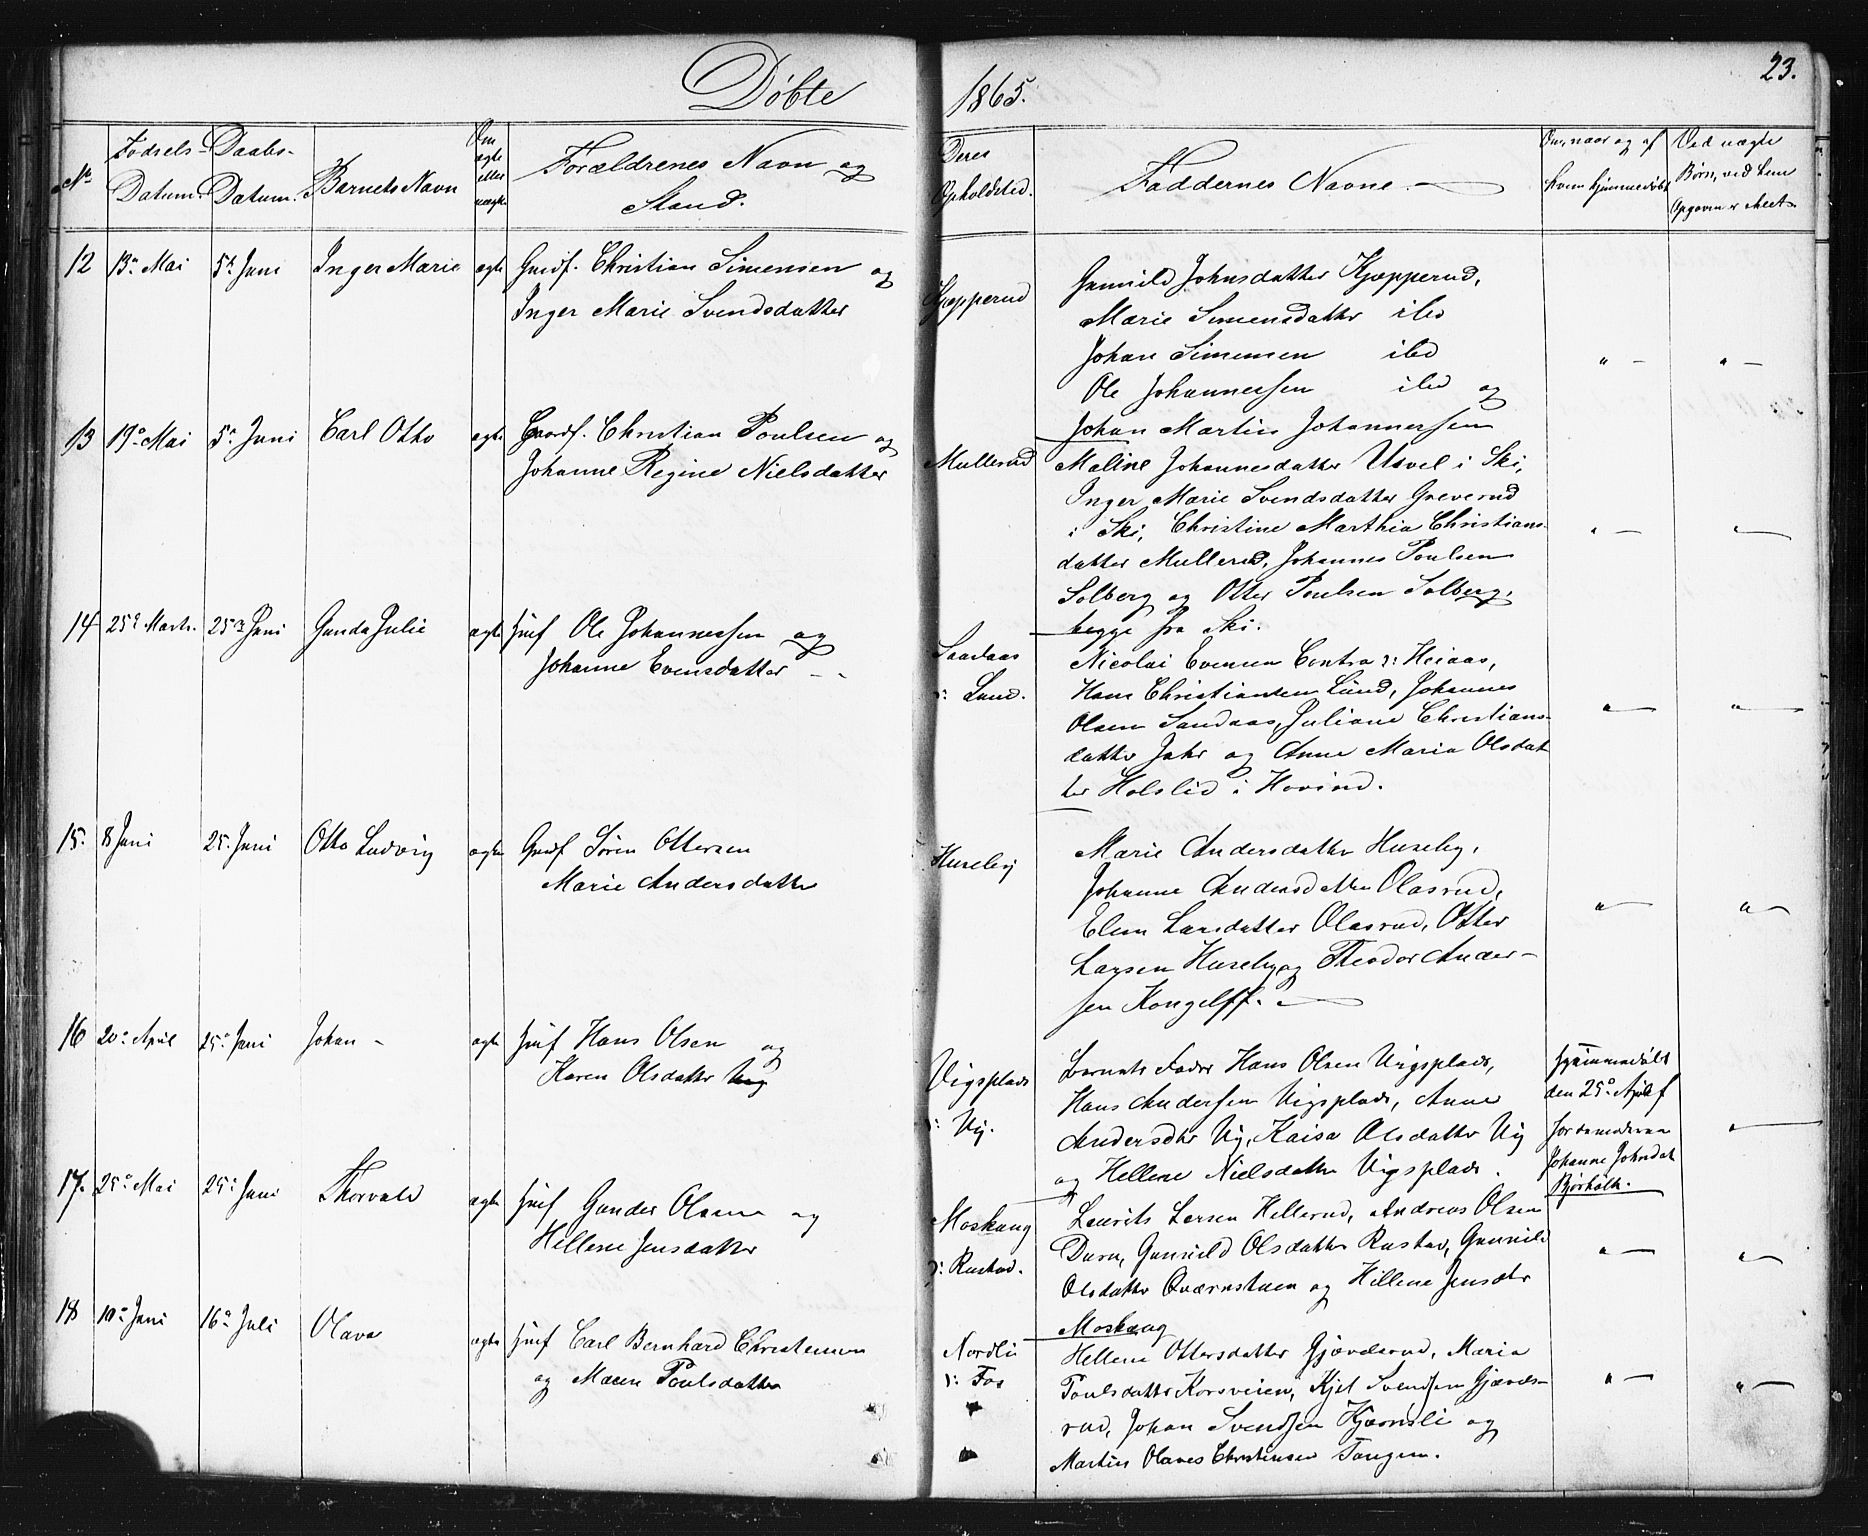 Døbte
1865.
23.
No
Fødsels-
Datum.
Daabs-
Datum.
Barnets Navn
Om
ægte
eller
uægte
Forældrenes Navn og
Stand.
Deres
Opholdsted.
Faddernes Navne.
Om, naar og af
hvem hjemmedøbt
Ved uægte
Børn, ved hvem
Opgaven er skeet
12 13de Mai 5te Juni Inger Marie ægte Gmdf. Christian Simensen og
Inger Marie Svendsdatter
Kjøpperud
Gunnild Johnsdatter Kjøpperud,
Marie Simensdatter ibd
Johan Simensen ibd
Ole Johannessen ibd og
Johan Martin Johannessen
13 19de Mai 5te Juni Carl Otto ægte Gaardf. Christian Poulsen og
Johanne Regine Nielsdatter
Mullerud
Maline Johannesdatter i Ski,
Inger Marie Svendsdatter Greverud
i Ski, Christine Marthia Christians-
datter Mullerud, Johannes Poulsen
Solberg og Otter Poulsen Solberg,
begge fra Ski.
14 25de Marts. 25de Juni Gunda Julie ægte Huusf Ole Johannessen og
Johanne Evensdatter
Sandaas
u: Lund.
Nicolai Evensen u: Heiaas,
Hans Christiansen Lund, Johannes
Olsen Sandaas, Juliane Christians-
datter Jahr og Anne Maria Olsdat
ter Holslid i Hovind.
15. 8 Juni 25. Juni Otto Ludvig ægte Gmdf Søren Ottersen
Marie Andersdatter
Huseby
Marie Andersdatter Huseby,
Johanne Andersdatter Olasrud,
Elen Larsdatter Olasrud, Otter
Larsen Huseby og Theodor Ander-
sen Kongelf.
16 20de April 25de Juni Johan ægte Huusf Hans Olsen og
Karen Olsdatter
Vigsplads
u: Vig.
Barnets Fader Hans Olsen Vigsplads,
Hans Andersen Vigsplads, Anne
Andersdtr Vig, Kaisa Olsdatter Vig
og Hellene Nielsdatter Vigsplads.
Hjemmedøbt
den 25de April af
Jordemoderen
Johanne Johnsdat
Bjørholt.
17. 25de Mai 25de Juni Thorvald ægte Huusf Gunder Olsen og
Hellene Jensdatter
Moskaug
u: Rustad.
Laurits Larsen Hellerud, Andreas Olsen
Duru, Gunnild Olsdatter Rustad, Gunnild
Olsdatter Qværnstuen og Hellene Jensdtr
Moskaug
18 10de Juni 16de Juli Olava ægte Huusf Carl Bernhard Christensen
og Maren Poulsdatter
Nordli
u: Fos
Hellene Ottersdatter Gjævdsrud, Maria
Poulsdatter Korsveien, Kjel Svendsen Gjævds-
rud, Johan Svendsen Kjærnsli og
Martin Olaves Christensen Tangen.